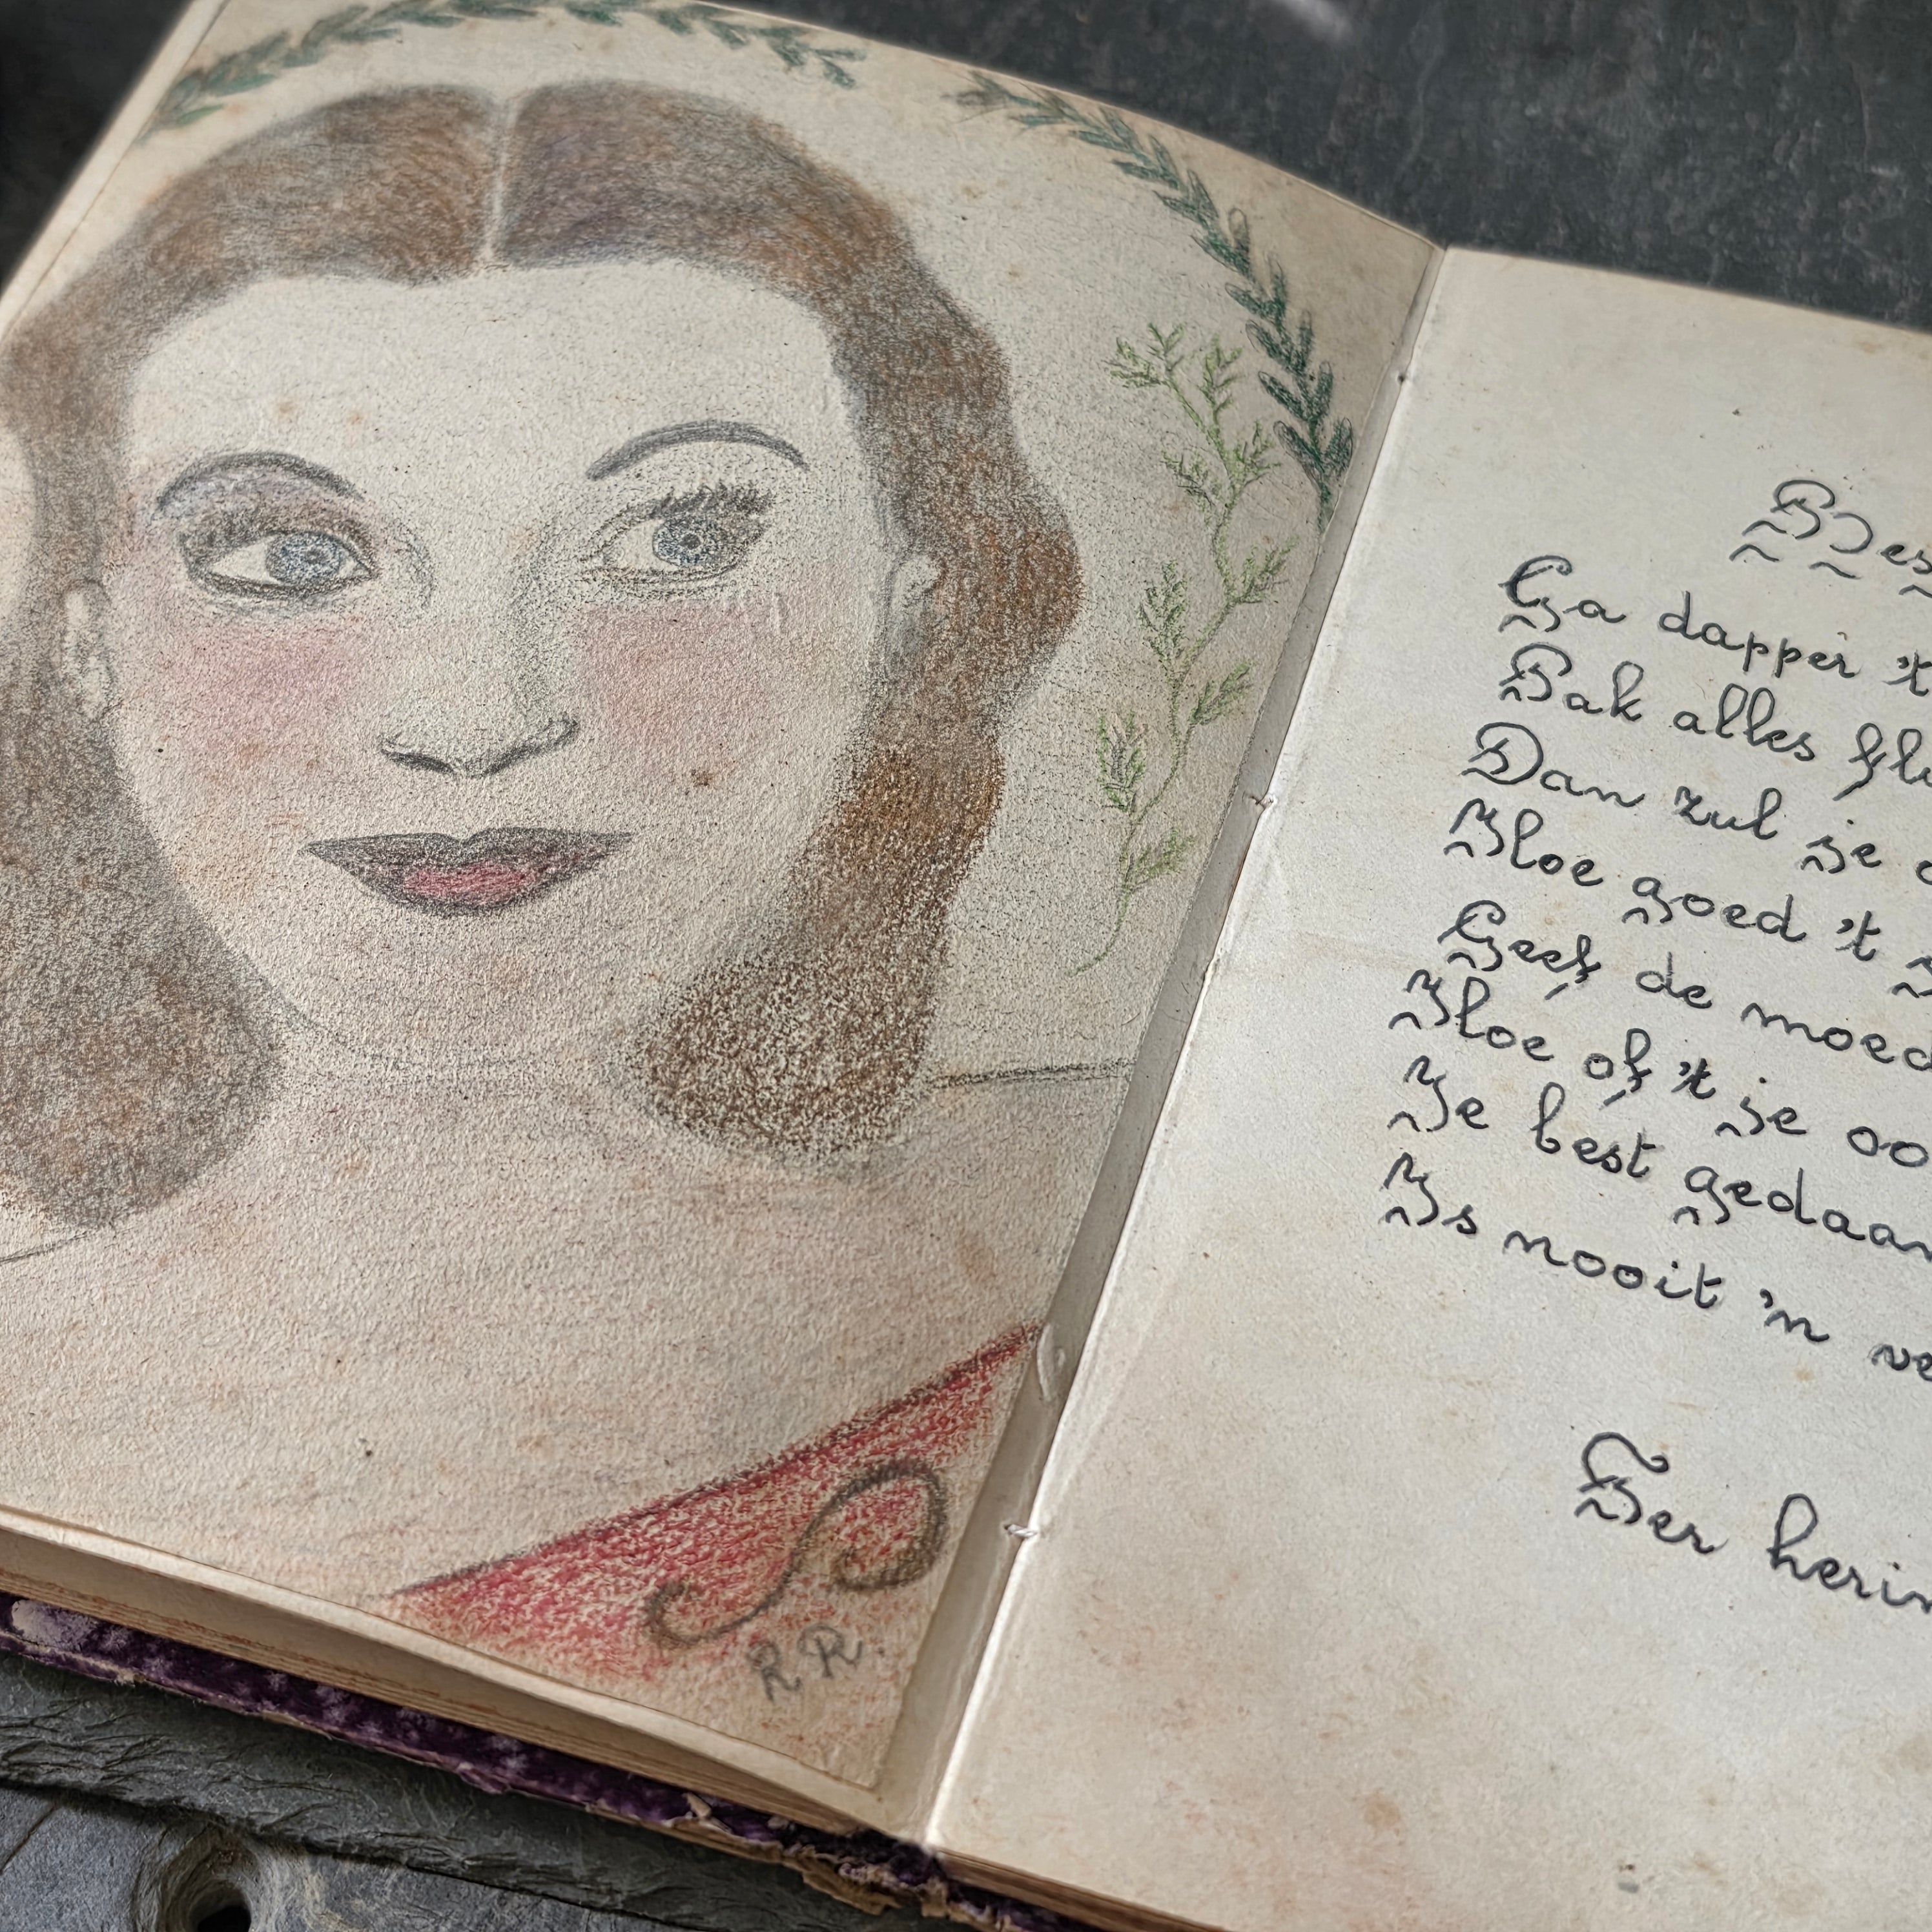 R.R.
Bes
Ga dapper 't
Pak alles fli
Dan zul je
Hoe goed 't
Geef de moed
Hoe of 't je oo
Je best gedaan
Is nooit 'n ve
Ter herin